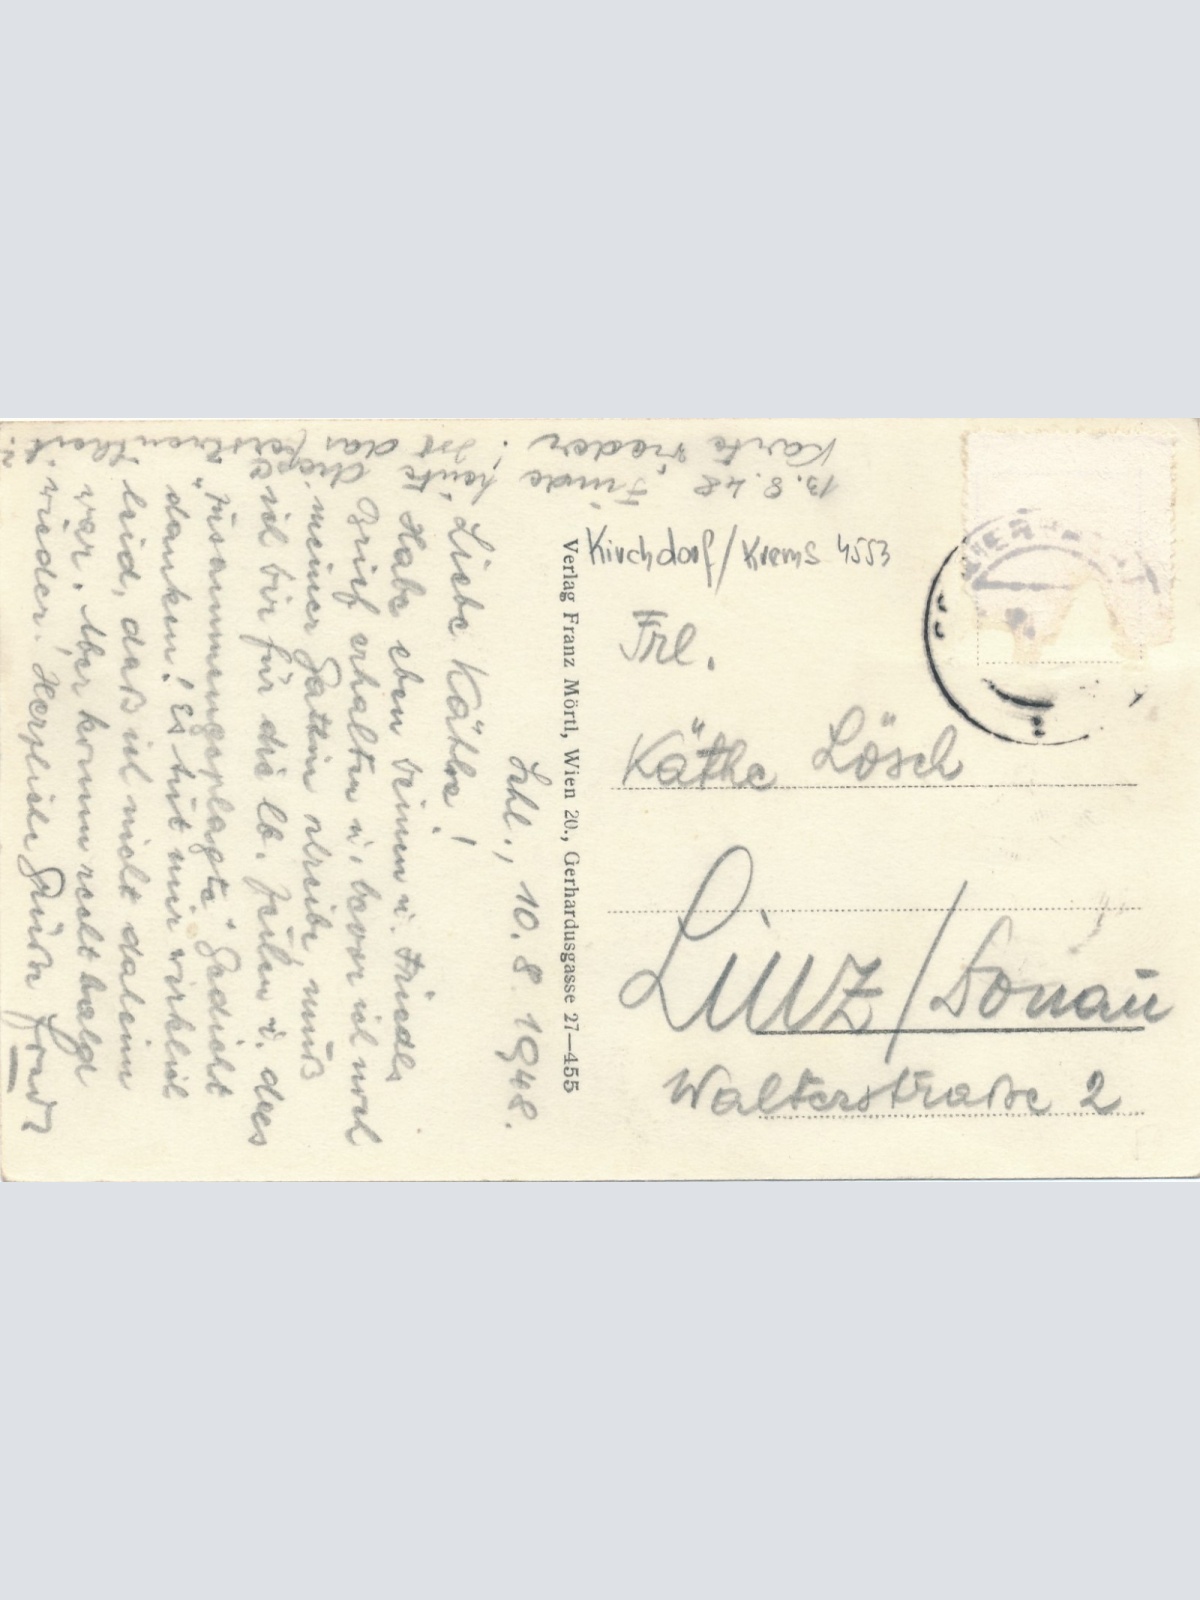 Schl., 10. 8. 1948.
Liebe Käthe!
Habe eben Deinen u. Friedls
Brief erhalten u. bevor ich noch
meiner Gattin schreibe, muß
ich Dir für die lb. Zeilen u. des
"zusammengeplagte" Gedicht
danken! Es tut mir wirklich
leid, daß ich nicht daheim
war. Aber komm recht bald
wieder. Herzliche Grüße
13. 8. 48 Finde heute diese
Karte wieder! Ist das Zerstreutheit?
Verlag Franz Mörtl, Wien 20., Gerhardusgasse 27—455
Kirchdorf/Krems 4553
Frl.
Käthe Lösch
Linz/Donau
Walterstraße 2